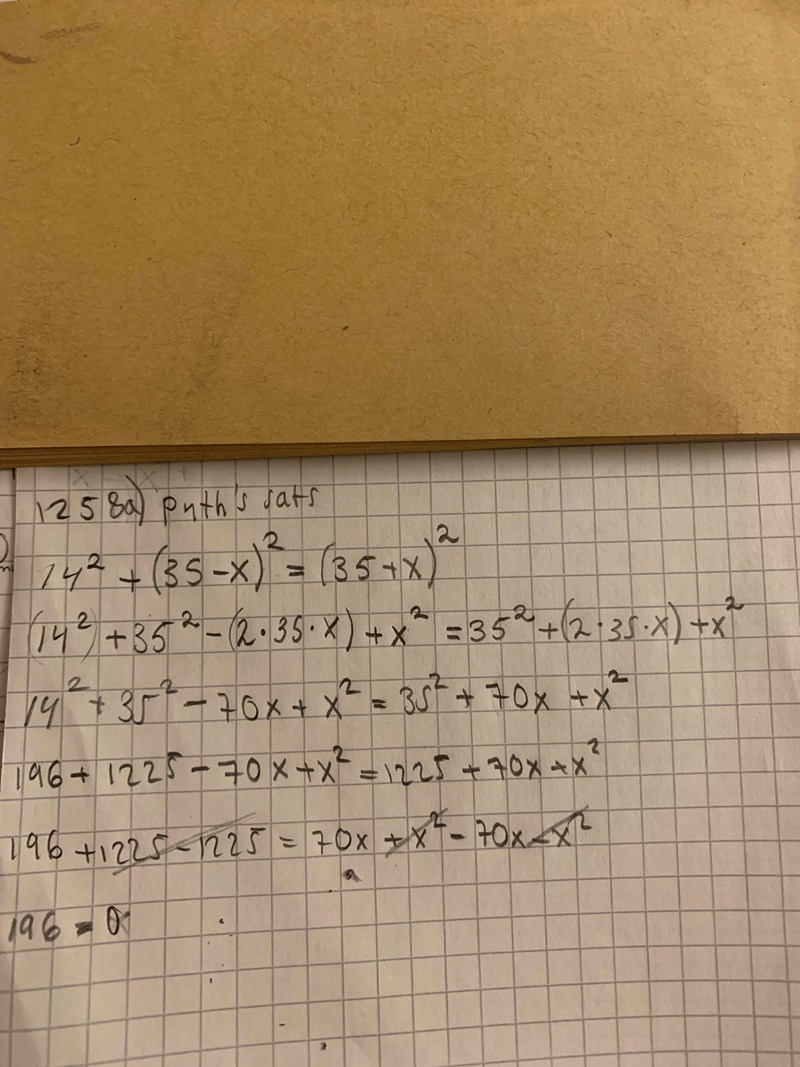 1258a) pyth's sats
14² + (35-x)² = (35+x)²
(14²) + 35² - (2·35·x) + x² = 35² + (2·35·x) + x²
14² + 35² - 70x + x² = 35² + 70x + x²
196 + 1225 - 70x + x² = 1225 + 70x + x²
196 + 1225 - 1225 = 70x + x² - 70x - x²
196 = 0